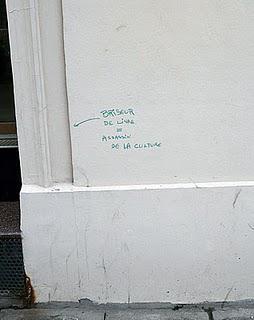 BRISEUR
DE LIVRE
=
ASSASSIN
DE LA CULTURE